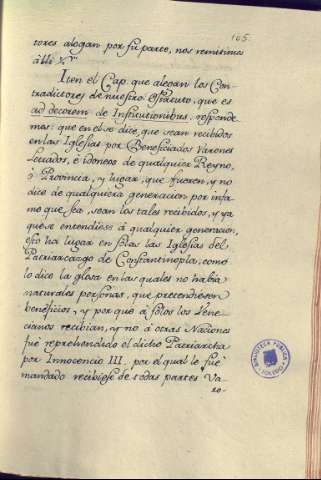 105
tores alegan por su parte, nos remitimos
à lli
Iten el Cap. que alegan los Con-
tradictores de nuestro estatuto, que es
ad decorem de Institutionibus, responde-
mos: que en el se dice, que sean recibidos
en las Iglesias por Beneficiados Varones
Letrados, è idoneos de qualquier Reyno,
ò Provincia, y lugar, que fueren, y no
dice de qualquiera generacion por infa-
me que sea, sean los tales recibidos, y ya
que se entendiese à qualquier generacion,
esto ha lugar en solas las Iglesias del
Patriarcazgo de Constantinopla, como
lo dice la glosa en las quales no habia
naturales personas, que pretendiesen
beneficios, y por que à solos los Vene-
cianos recibian, y no à otras Naciones
fuè reprehendido el dicho Patriarcha
por Innocencio III. por el qual le fuè
mandado recibiese de todas partes Va-
ro-
BIBLIOTECA PUBLICA
TOLEDO